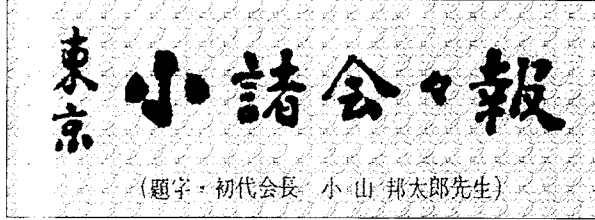 東京
小諸会々報
(題字・初代会長 小山邦太郎先生)